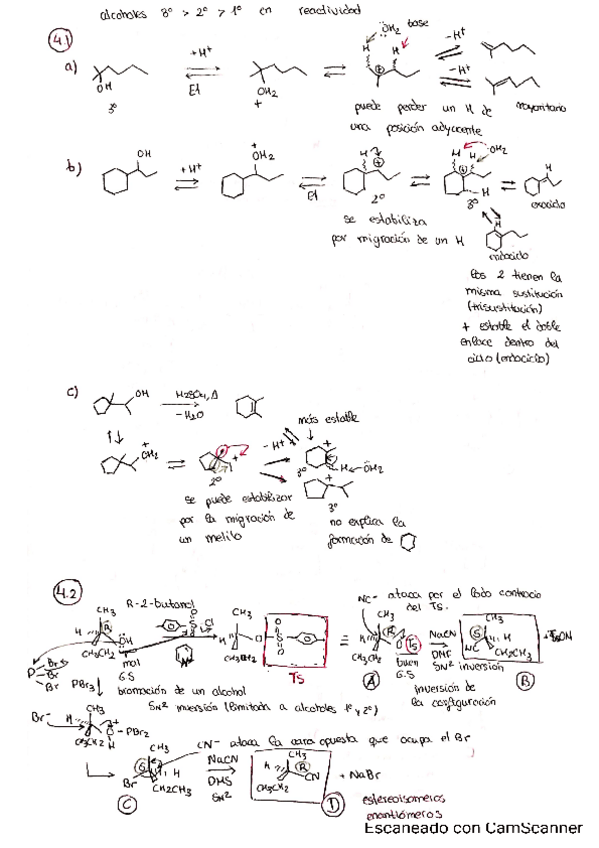 alcoholes 3º > 2º > 1º en reactividad
4.1
a)
OH
3º
+H⁺
El
OH₂
+
H H ÖH₂ base
-H⁺
-H⁺
puede perder un H de
una posición adyacente
mayoritario
b)
OH
+H⁺
+
OH₂
El
H
2º
H H OH₂
H
3º
H
exociclo
se estabiliza
por migración de un H
H
endociclo
Los 2 tienen la
misma sustitución
(trisustitución)
+ estable el doble
enlace dentro del
ciclo (endociclo)
c)
OH
H₂SO₄, Δ
-H₂O
+
OH₂
2º
+
-H⁺
más estable
+
3º
H
ÖH₂
+
3º
se puede estabilizar
por la migración de
un metilo
no explica la
formación de
4.2
R-2-butanol
CH₃
R
OH
CH₃CH₂
mal
G.S
Cl
CH₃
H
O
CH₃CH₂
TS
NC⁻ ataca por el lado contrario
del TS.
CH₃
R
O TS
CH₃CH₂
buen
G.S
A
NaCN
DMF
SN² inversión
inversión de
la configuración
CH₃
S
H
NC
CH₂CH₃
B
P
Br
Br
Br
PBr₃
bromación de un alcohol
SN² inversión (limitada a alcoholes 1º y 2º)
Br⁻
H
CH₃
O - PBr₂
H
CH₃CH₂
CN⁻ ataca la cara opuesta que ocupa el Br
CH₃
S
H
Br
CH₂CH₃
C
NaCN
DMS
SN²
CH₃
H
R
CN
CH₃CH₂
D
+ NaBr
estereoisomeros
enantiómeros
Escaneado con CamScanner